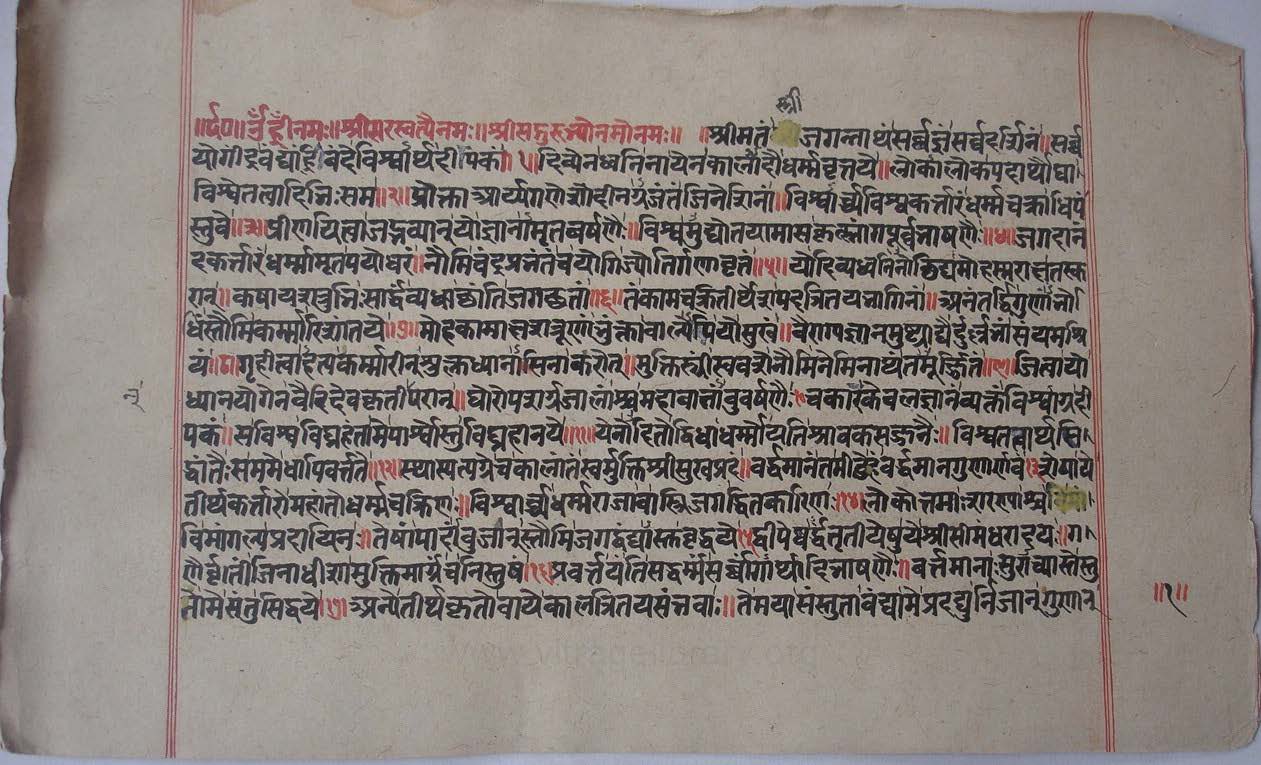 श्री
॥र्द०॥ ॐ ह्रीँनमः॥श्रीसरस्वत्यैनमः॥श्रीसद्गुरुभ्योनमोनमः॥ ॥श्रीमतं जगन्नाथंसर्व्वज्ञंसर्वदर्शिनं॥सर्व्व
योगीद्रवंद्यांह्रिंवंदेविश्वार्थदीपकं॥१॥दिव्येनध्वनिनायेनकालादौधर्म्मवृत्तये॥लोकालोकपदार्थौघा
विश्वेतत्वादिभिःसमं॥२॥प्रोक्ताआर्य्यगणेशादीन्यजंतंजिनेशिनां॥विश्वार्च्यविश्वकर्त्तारंधर्म्मचक्राधिपं
स्तुवे॥३॥प्रीणयित्वाजद्भव्यान्योज्ञानामृतवर्षणैः॥विश्वमुद्योतयामासकृत्स्नांगपूर्वभाषणैः॥४॥जगदानं
दकर्त्तारंधर्म्मामृतपयोधरं॥नौमिचंद्रप्रभंतंचयोगिज्योतिर्गणावृतं॥५॥योदिव्यध्वनिनोछिद्यमोहस्मराक्षतस्क
रान्॥कषायशत्रुभिःसार्द्धंव्यधाछांतिंजगछतां॥६॥तंकामचक्रितीर्थेशपदत्रितयभागिनं॥अनंतर्द्धिगुणांभो
धिंस्तौमिकर्म्मारिशांतये॥७॥मोहकामाक्षशत्रूणांभुंक्तावाल्येपियोमुखं॥वैराग्यज्ञानमुष्ट्याद्यैर्दुर्ल्लभंसंयमश्रि
यं॥८॥गृहीत्वाहत्यकर्म्मारीन्शुक्लध्यानासिनाकरोत्॥मुक्तिस्त्रींस्ववशेनौमिनेमिनाथंतमूर्ज्जितं॥९॥जित्वायो
ध्यानयोगेनवैरिदेवकृतांपरान्॥घोरोपसर्गजालांश्चमहावातांबुवर्षणैः॥१०॥चकारकेवलज्ञानंव्यक्तंविश्वाग्रदी
पकं॥सविश्वविघ्नहंतामेपार्श्वोस्तुविघ्नहानये॥११॥येनोदितोद्विधाधर्म्मोयतिश्रावकसज्जनैः॥विश्वतत्वार्थसि
द्धांतैःसममेधापिवर्त्तते॥१२॥स्थास्यत्यग्रेचकालांतंस्वर्मुक्तिश्रीसुखप्रदं॥वर्द्धमानंतमीडेहंवर्द्धमानगुणार्णवं॥१३॥शेषाये
तीर्थकर्त्तारोमहांतोधर्म्मचक्रिणः॥विश्वार्च्च्याधर्म्मराजावास्त्रिजगद्धितकारिणः॥१४॥लोकोत्तमाःशरणाश्च
विमांगल्यप्रदायिनः॥तेषांपादांबुजान्स्तौमिजगद्वंद्यांस्तद्वृद्धये॥१५॥द्वीपेष्वर्द्धतृतीयेषुयेश्रीसीमंधरादयः॥ग
णैर्वृतांजिनाधीशामुक्तिमार्गंचनिस्तुषं॥१६॥प्रवर्त्तयंतिसद्धर्म्मंसर्व्वांगार्थादिभाषणैः॥वर्त्तमानाःसुरार्च्यास्तेस्तु
तामेसंतुसिद्धये॥१७॥अन्येतीर्थकृतोवायेकालत्रितयसंभवाः॥तेमयासंस्तुतावंद्यामेप्रदद्युर्निजान्गुणान्
॥१॥